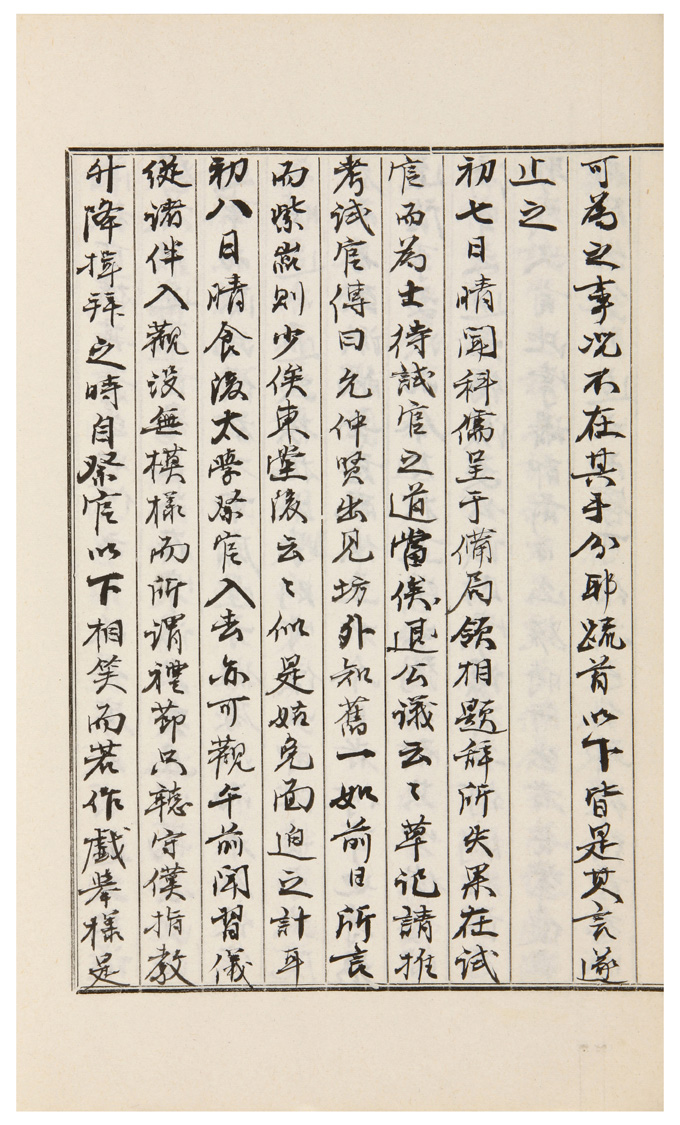 可為之事况不在其手分耶疏首以下皆是其言遂
止之
初七日晴聞科儒呈于備局領相題辞所失果在試
官而為士待試官之道當俟退公議云〻草记請推
考試官傳曰允仲賢出見坊外知舊一如前日所言
而紫嵓則少俟東堂後云〻似是姑免面迫之計耳
初八日晴食後太學祭官入去亦可觀午前聞習儀
從諸伴入觀设無模樣而所謂禮節只聽守僕指教
升降揖拜之時自祭官以下相笑而若作戲舉樣是